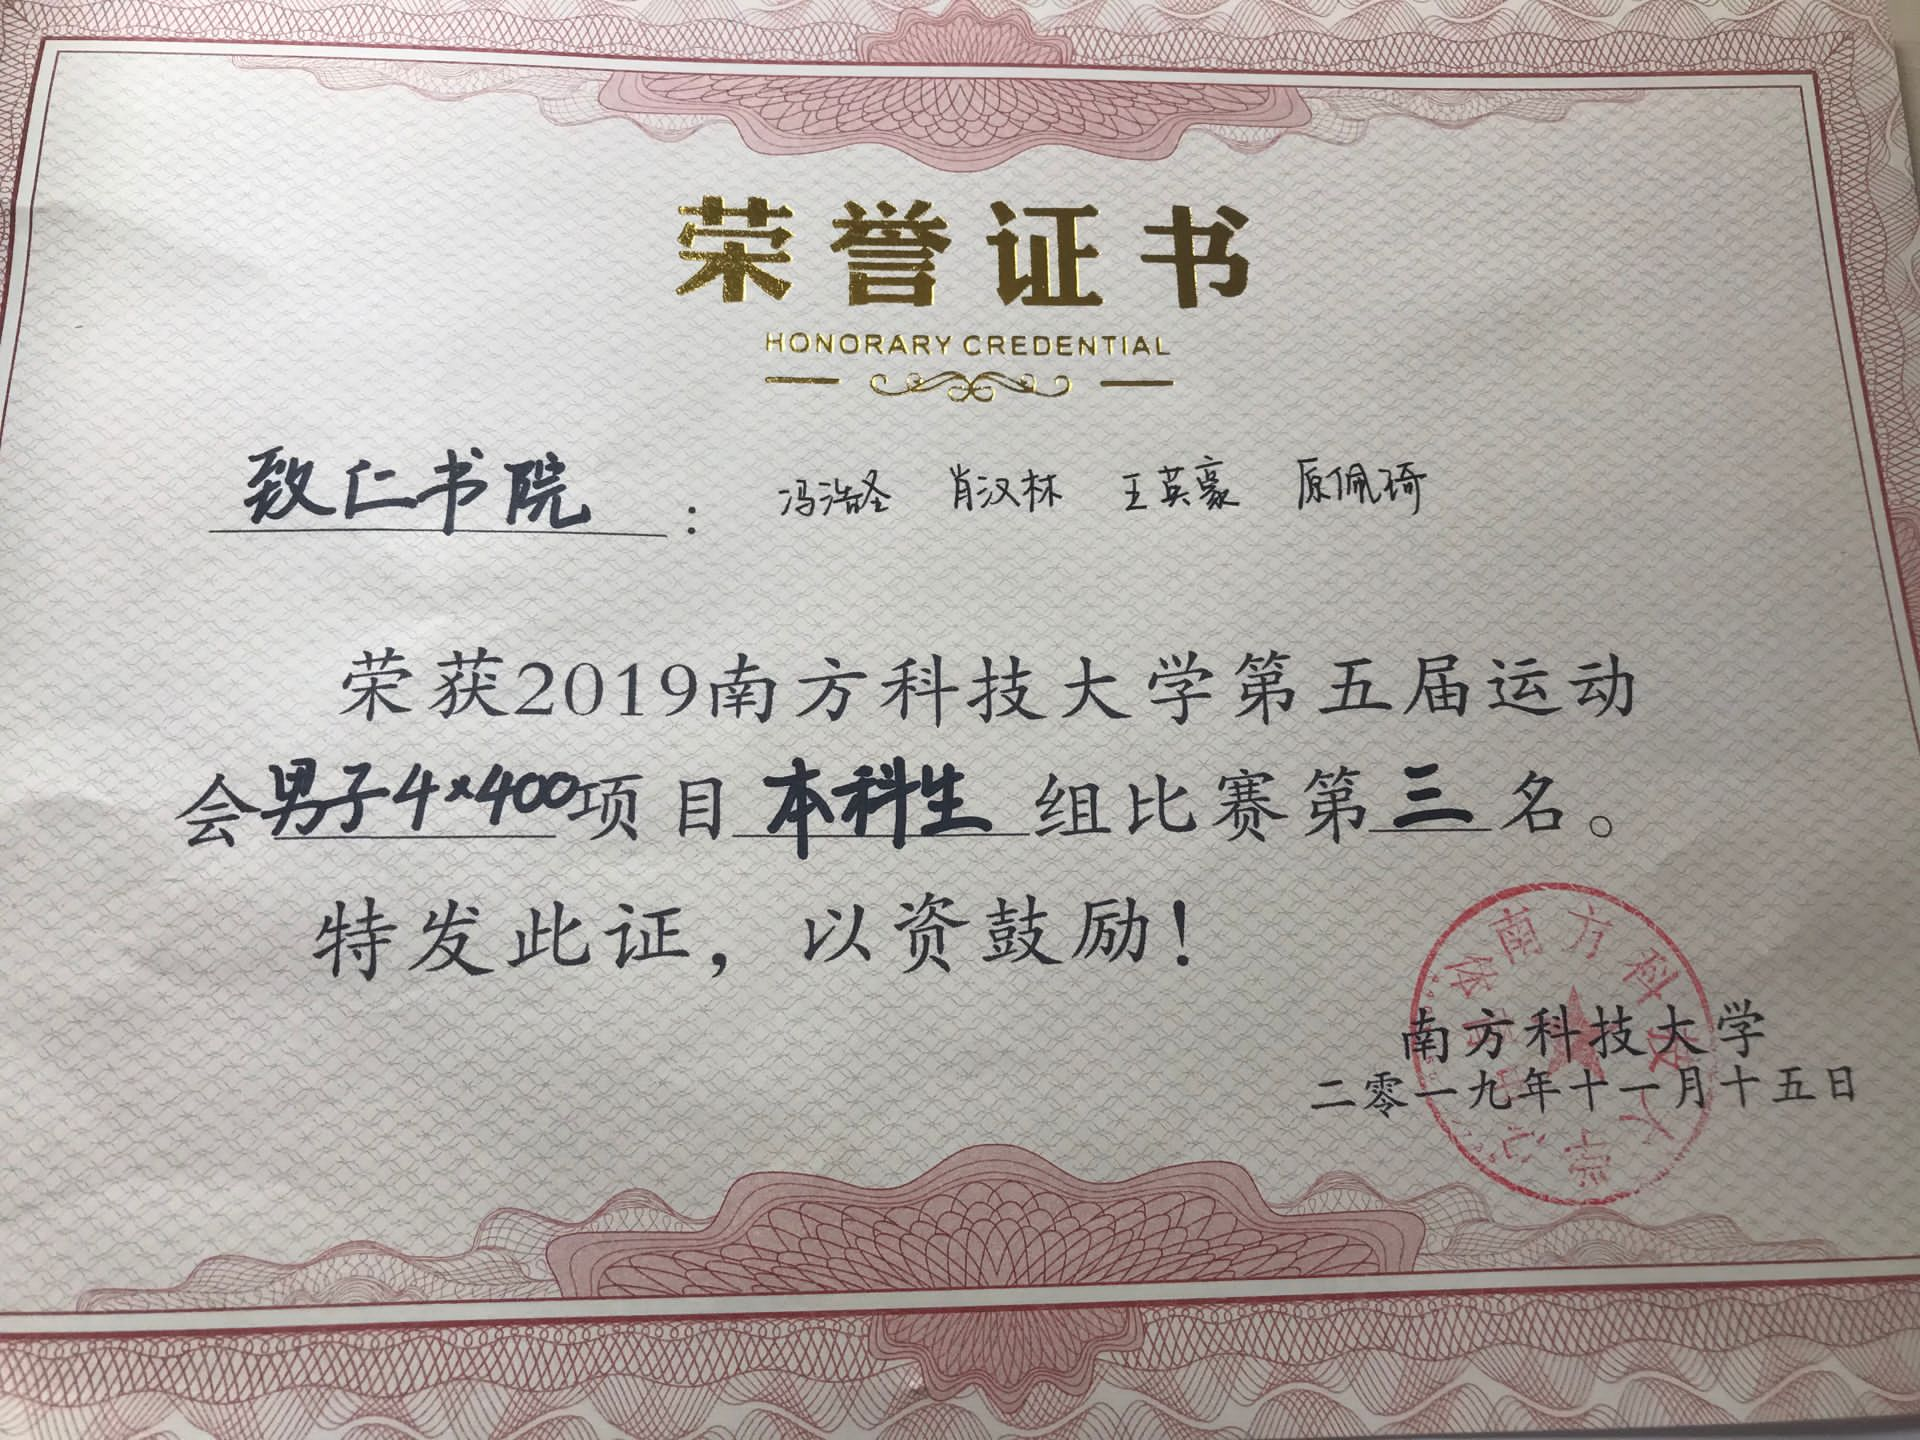 荣誉证书
HONORARY CREDENTIAL
致仁书院： 冯浩圣 肖汉林 王英豪 原佩琦
荣获2019南方科技大学第五届运动
会男子4×400项目本科生组比赛第三名。
特发此证，以资鼓励！
南方科技大学
二零一九年十一月十五日
南方科技大学体育中心